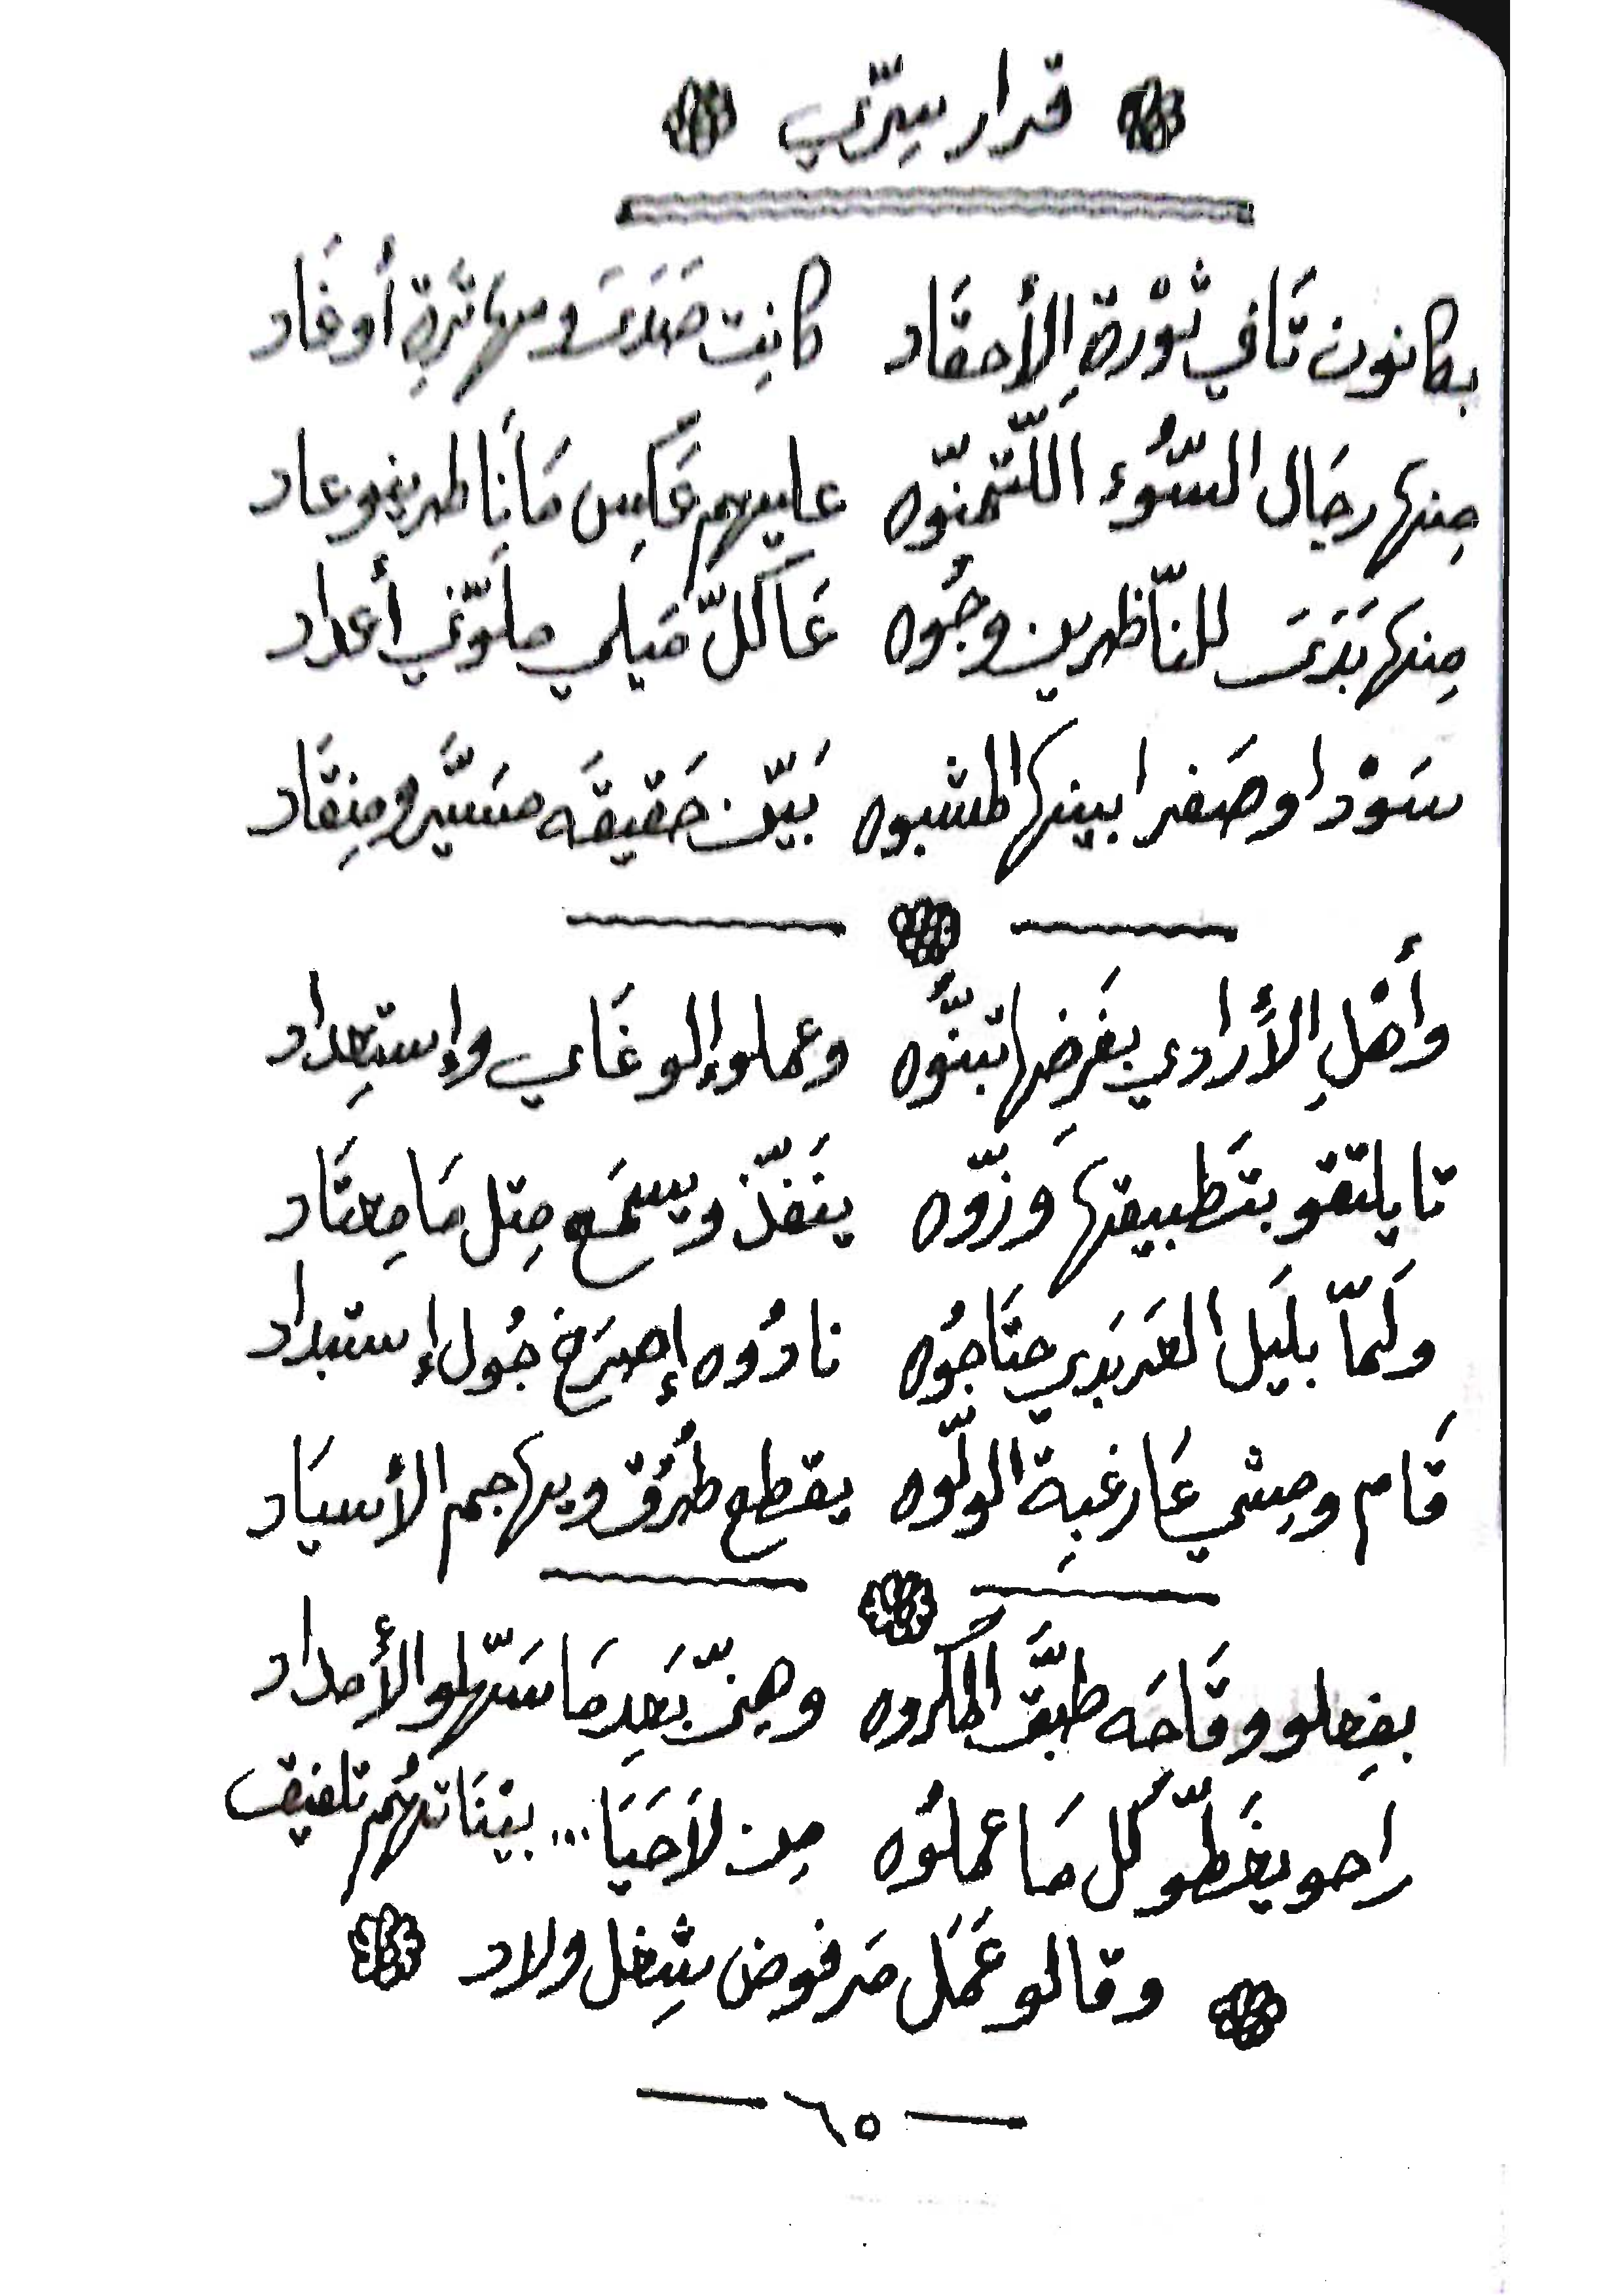 قرار سِرّي
بكانون تَاني ثوْرةِ الأحقَاد كانِت صَدَىَ ومهاترةِ أوغَاد
مِنها رجَال السّوُء اللّتمنّوه عليهم عَكِس مَا ناطرينو عاد
مِنها بَدَىَ للنّاظرين وجُوه عَا كلّ مَيلي ملوّني أعداد
سَوْدا وصَفرا بينها المشبوه بَيّن حَقيقَه مسَيَّر ومِنقَاد
وأهْلِ الأرادي بغَرِضها تبنّوُه وعملوء إلو غَاي وإستِعداد
تا يلتقو بتَطبيقها وَزّوه ينَفّذ ويسمَع مِتل مَا مِعتَاد
ولَمّا بلَيل العَربَدي حتَاجُوه نادُوه إصرَخ جُول إستبداد
قَام ومِشي عَا رغبِة الولّوه يقطع طرُق ويهاجم الأسيَاد
بفِعلو وقَاحَه طبَّق المكروه وهنّي بَعِد مَا سَهّلو الأمداد
راحو يغَطّو كُل مَا عملوُه مِن لاَحَيَا... بيْنَاتهُم تلفيق
وقالو عَمَل مَرفوض شِغل ولاد
— ٦٥ —